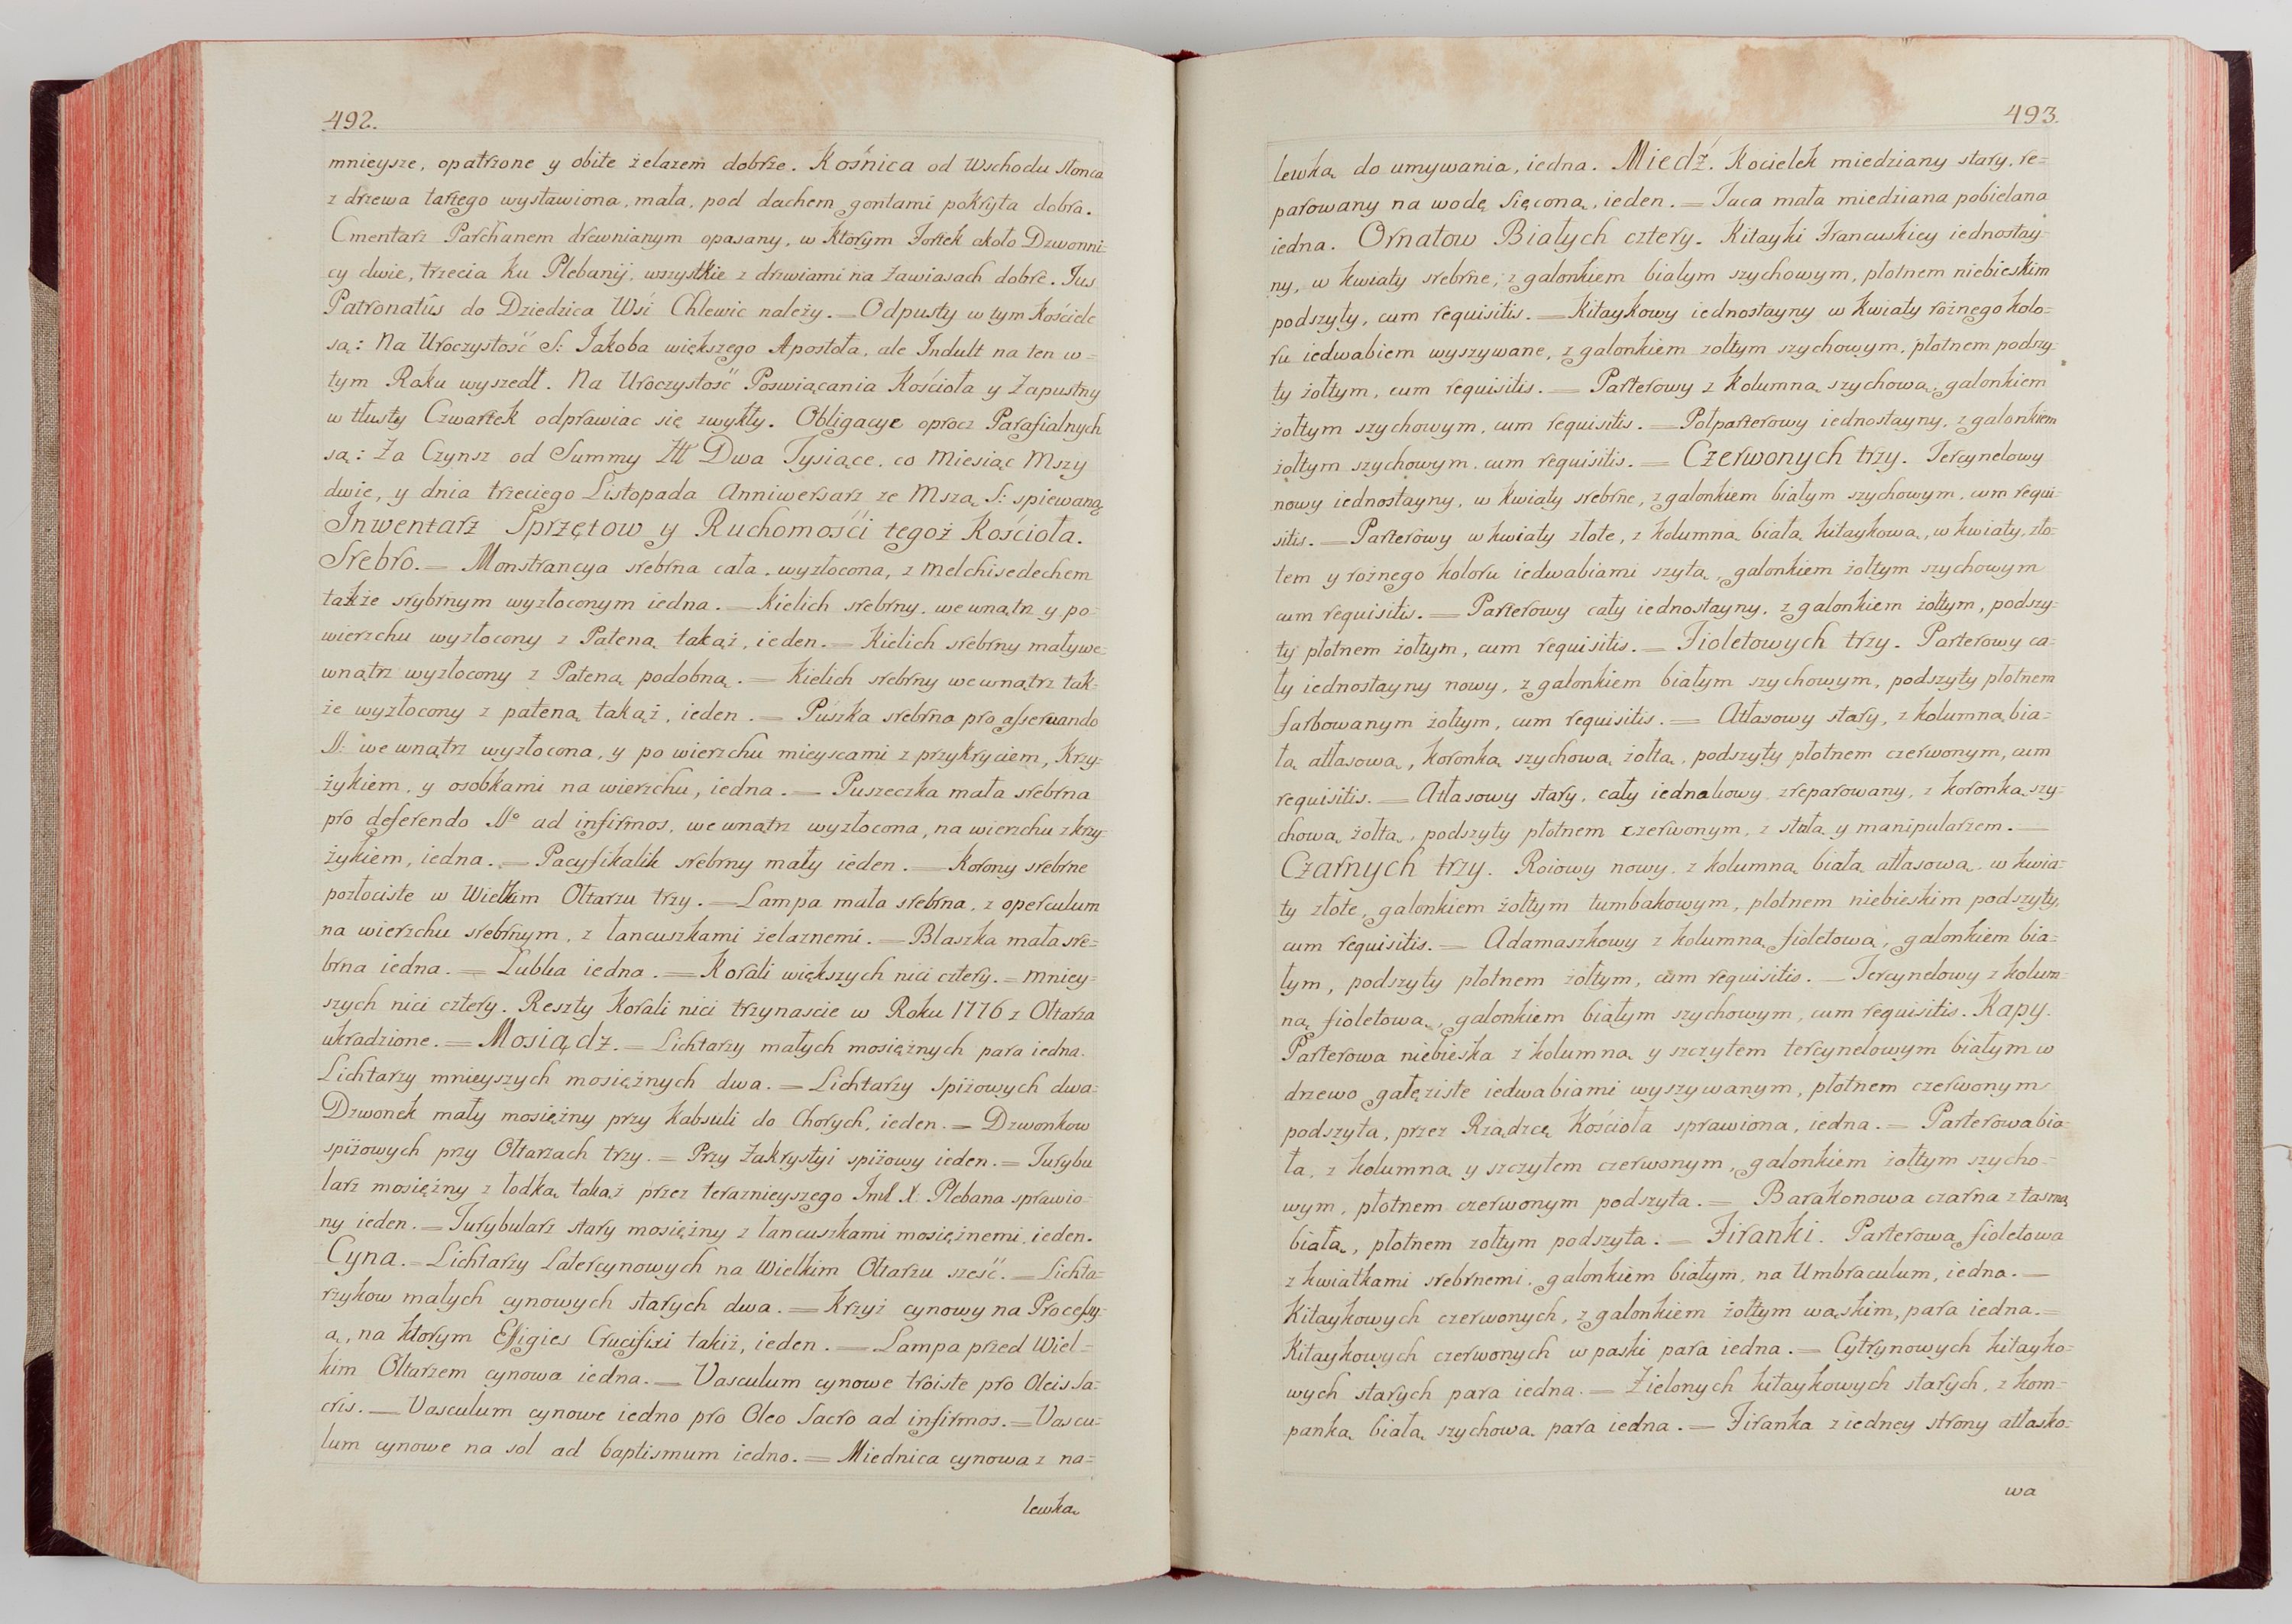 492.
mnieysze, opatrzone y obite żelazem dobrze. Kośnica od Wschodu słonca
z drzewa tartego wystawiona, mała, pod dachem gontami pokryta dobra.
Cmentarz Parchanem drewnianym opasany, w ktorym Fortek około Dzwonni=
cy dwie, trzecia ku Plebanij, wszystkie z drzwiami na zawiasach dobre. Jus
Patronatûs do Dziedzica Wsi Chlewic należy. — Odpusty w tym Kościele
są: Na Uroczystość S: Jakoba większego Apostoła, ale Indult na ten w=
tym Roku wyszedł. Na Uroczystość Poswiącania Kościoła y Zapustny
w tłusty Czwartek odprawiac się zwykły. Obligacye oprocz Parafialnych
są: Za Czynsz od Summy Złł Dwa Tysiące, co Miesiąc Mszy
dwie, y dnia trzeciego Listopada Anniwersarz ze Mszą S: spiewaną
Inwentarz Sprzętow y Ruchomości tegoż Kościoła.
Srebro. = Monstrancya srebrna cała, wyzłocona, z Melchisedechem
także srybrnym wyzłoconym iedna. — Kielich srebrny, we wnątrz y po=
wierzchu wyzłocony z Pateną takąż, ieden. = Kielich srebrny mały we=
wnątrz wyzłocony z Pateną podobną. = Kielich srebrny we wnątrz tak=
że wyzłocony z pateną takąż, ieden. = Puszka srebrna pro asservando
SS: we wnątrz wyzłocona, y po wierzchu mieyscami z przykryciem, Krzy=
żykiem, y osobkami na wierzchu, iedna. — Puszeczka mała srebrna
pro deferendo SSo ad infirmos, we wnątrz wyzłocona, na wierzchu z krzy=
żykiem, iedna. — Pacyfikalik srebrny mały ieden. — Korony srebrne
pozłociste w Wielkim Ołtarzu trzy. — Lampa mała srebrna, z operculum
na wierzchu srebrnym, z łancuszkami żelaznemi. — Blaszka mała sre=
brna iedna. = Lubla iedna. = Korali większych nici cztery. = Mniey=
szych nici cztery. Reszty Korali nici trzynascie w Roku 1776 z Ołtarza
ukradzione. = Mosiądz. = Lichtarzy małych mosiężnych para iedna.
Lichtarzy mnieyszych mosiężnych dwa. = Lichtarzy Spiżowych dwa=
Dzwonek mały mosiężny przy Kabsuli do Chorych, ieden. = Dzwonkow
spiżowych przy Ołtarzach trzy. = Przy Zakrystyi spiżowy ieden. = Turybu
larz mosiężny z łodką takąż przez teraznieyszego Jmć X. Plebana sprawio=
ny ieden. = Turybularz stary mosiężny z łancuszkami mosiężnemi, ieden.
Cyna. = Lichtarzy Latercynowych na Wielkim Ołtarzu sześć. = Lichta=
rzykow małych cynowych starych dwa. = Krzyż cynowy na Processy=
ą, na ktorym Effigies Crucifixi takiż, ieden. — Lampa przed Wiel=
kim Ołtarzem cynowa iedna. = Vasculum cynowe troiste pro Oleis Sa=
cris. — Vasculum cynowe iedno pro Oleo Sacro ad infirmos. = Vascu=
lum cynowe na sol ad baptismum iedno. = Miednica cynowa z na=
lewką
493.
lewką do umywania, iedna. Miedź. Kociełek miedziany stary, re=
parowany na wodę Sięconą, ieden. = Taca mała miedziana pobielana
iedna. Ornatow Białych cztery. Kitayki Francuskiey iednostay=
ny, w kwiaty srebrne, z galonkiem białym szychowym, płotnem niebieskim
podszyty, cum requisitis. = Kitaykowy iednostayny w Kwiaty rożnego kolo=
ru iedwabiem wyszywane, z galonkiem zołtym szychowym, płotnem podszy=
ty żołtym, cum requisitis. = Parterowy z Kolumną szychową, galonkiem
żołtym szychowym, cum requisitis. = Połparterowy iednostayny, z galonkiem
żołtym szychowym, cum requisitis. = Czerwonych trzy. Tercynelowy
nowy iednostayny, w kwiaty srebrne, z galonkiem białym szychowym, cum requi=
sitis. = Parterowy w kwiaty złote, z kolumną białą kitaykową, w kwiaty, zło=
tem y rożnego koloru iedwabiami szytą, galonkiem żołtym szychowym
cum requisitis. = Parterowy cały iednostayny, z galonkiem żołtym, podszy=
ty płotnem żołtym, cum requisitis. = Fioletowych trzy. Parterowy ca=
ły iednostayny nowy, z galonkiem białym szychowym, podszyty płotnem
farbowanym żołtym, cum requisitis. = Atłasowy stary, z kolumną bia=
łą atłasową, koronką szychową żołtą, podszyty płotnem czerwonym, cum
requisitis. = Atłasowy stary, cały iednakowy zreparowany, z koronką szy=
chową żołtą, podszyty płotnem czerwonym, z stułą y manipularzem. —
Czarnych trzy. Roiowy nowy, z kolumną białą atłasową, w kwia=
ty złote, galonkiem żołtym tumbakowym, płotnem niebieskim podszyty,
cum requisitis. = Adamaszkowy z kolumną fioletową, galonkiem bia=
łym, podszyty płotnem żołtym, cum requisitis. — Tercynelowy z kolum=
ną fioletową, galonkiem białym szychowym, cum requisitis. Kapy.
Parterowa niebieska z kolumną y szczytem tercynelowym białym w
drzewo gałęziste iedwabiami wyszywanym, płotnem czerwonym
podszyta, przez Rządzcę Kościoła sprawiona, iedna. = Parterowa bia=
ła, z kolumną y szczytem czerwonym, galonkiem żołtym szycho=
wym, płotnem czerwonym podszyta. = Barakonowa czarna z tasmą
białą, płotnem zołtym podszyta. = Firanki. Parterowa fioletowa
z kwiatkami srebrnemi, galonkiem białym, na Umbraculum, iedna. —
Kitaykowych czerwonych, z galonkiem żołtym wąskim, para iedna. =
Kitaykowych czerwonych w paski para iedna. = Cytrynowych kitayko=
wych starych para iedna. = Zielonych kitaykowych starych, z kom=
panką białą szychową para iedna. = Firanka z iedney strony atłasko=
wa